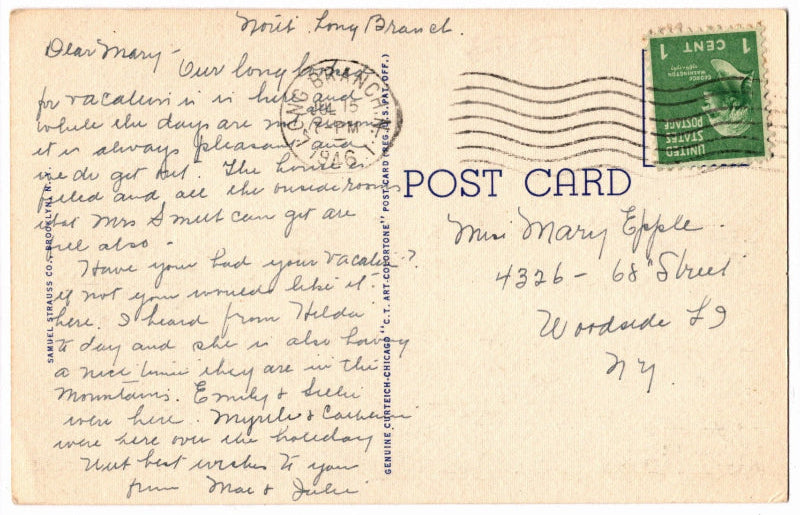 North Long Branch
Dear Mary -
Our long looked
for vacation is here and
while the days are
it is always pleasant and
we do get out. The house is
filled and all the outside rooms
that Mrs can get are
also -
Have you had your vacation?
if not you would like it
here. I heard from Hilda
to day and she is also having
a nice time they are in the
Mountains. Emily &
were here. Myrtle & Catherine
were here over the holiday
With best wishes to you
from Mae & Julie
SAMUEL STRAUSS CO., BROOKLYN, N.Y.
GENUINE CURTEICH-CHICAGO "C.T. ART-COLORTONE" POST CARD (REG. U.S. PAT. OFF.)
LONG BRANCH N.J.
JUL 15
PM
1946
1 CENT 1
GEORGE
WASHINGTON
UNITED
STATES
POSTAGE
POST CARD
Miss Mary Epple
4326 - 68" Street
Woodside L I
NY